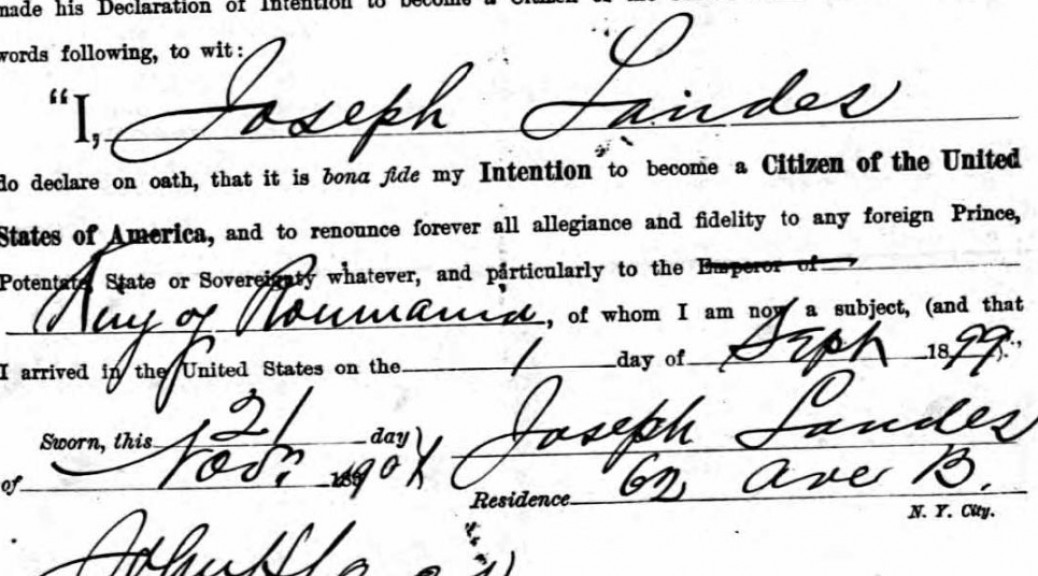 made his Declaration of Intention to become a Citizen of the
words following, to wit:
“I, Joseph Landes
do declare on oath, that it is bona fide my Intention to become a Citizen of the United
States of America, and to renounce forever all allegiance and fidelity to any foreign Prince,
Potentate, State or Sovereignty whatever, and particularly to the Emperor of
King of Roumania, of whom I am now a subject, (and that
I arrived in the United States on the 1 day of Seph 1899).”
Sworn, this 21 day
of Nov. 1904
Joseph Landes
Residence 62 Ave B.
N. Y. City.
John